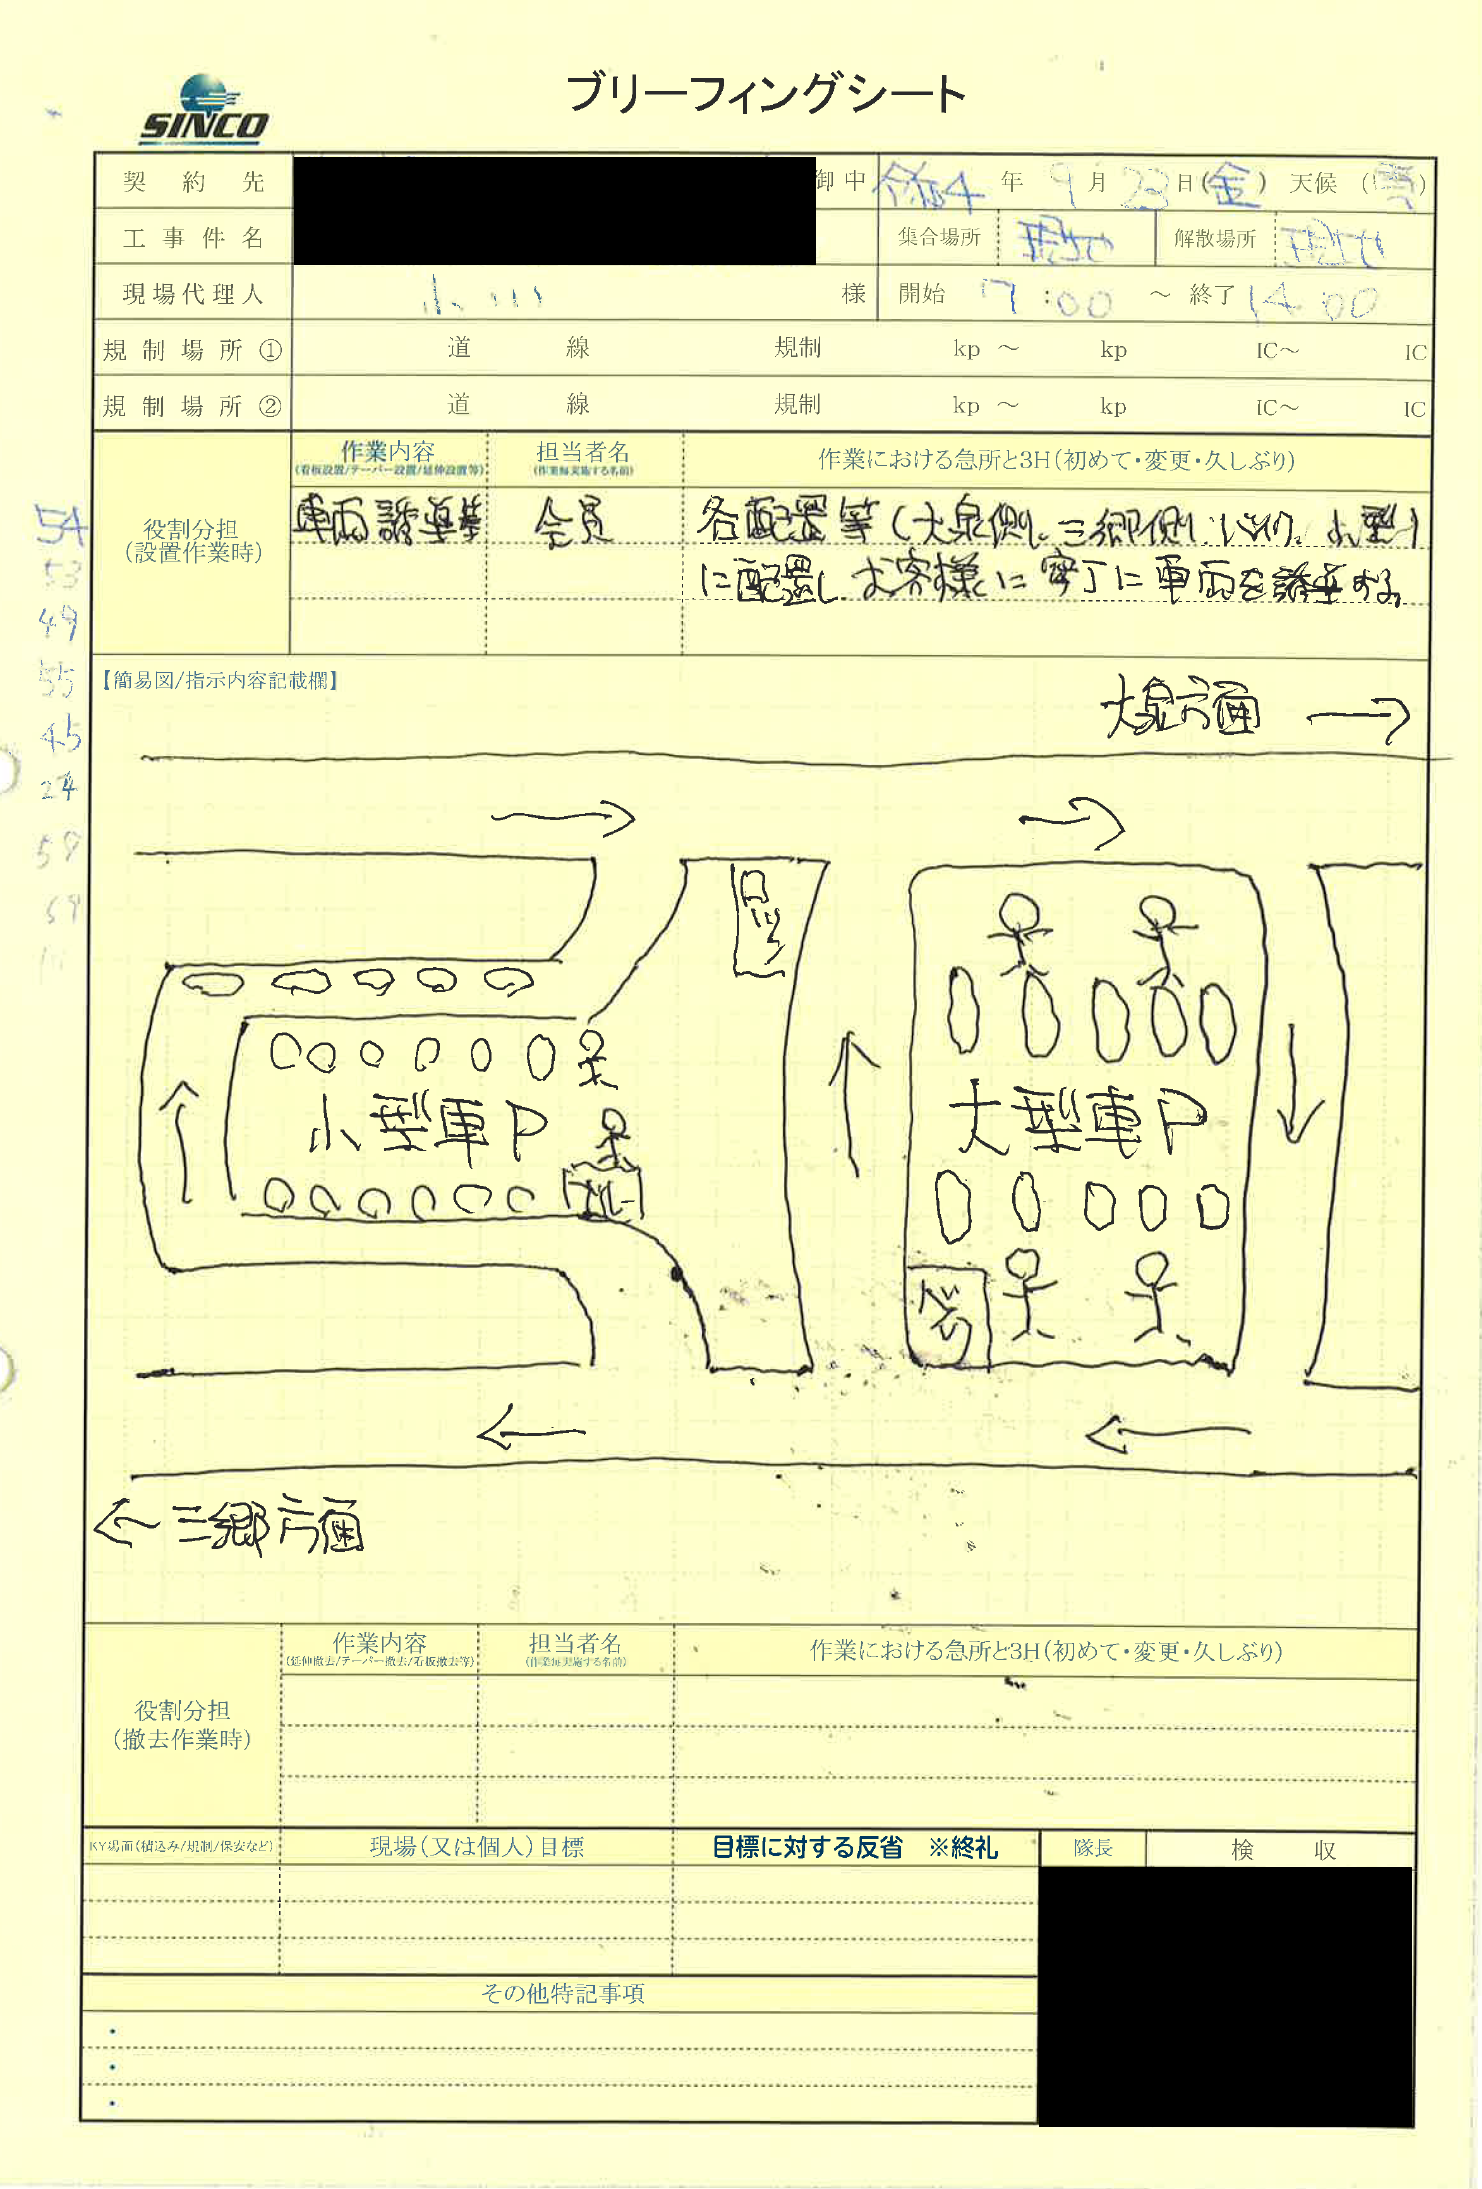 ブリーフィングシート
SINCO
契約先 御中 令和4年9月23日(金) 天候( )
工事件名 集合場所 現地 解散場所 現地
現場代理人 小川 様 開始 7:00 ~ 終了 14:00
規制場所① 道 線 規制 kp ~ kp IC~ IC
規制場所② 道 線 規制 kp ~ kp IC~ IC
役割分担
(設置作業時)
作業内容
(看板設置/テーパー設置/延伸設置等)
担当者名
(作業毎実施する名前)
作業における急所と3H(初めて・変更・久しぶり)
車両誘導等 全員 各配置等(大泉側、三郷側 小型)
に配置し、お客様に寧丁に車両を誘導する。
54
53
49
55
45
24
59
59
【簡易図/指示内容記載欄】
大泉方面 →
小型車P
大型車P
← 三郷方面
役割分担
(撤去作業時)
作業内容
(延伸撤去/テーパー撤去/看板撤去等)
担当者名
(作業毎実施する名前)
作業における急所と3H(初めて・変更・久しぶり)
KY場面(積込み/規制/保安など) 現場(又は個人)目標 目標に対する反省 ※終礼 隊長 検収
その他特記事項
・
・
・